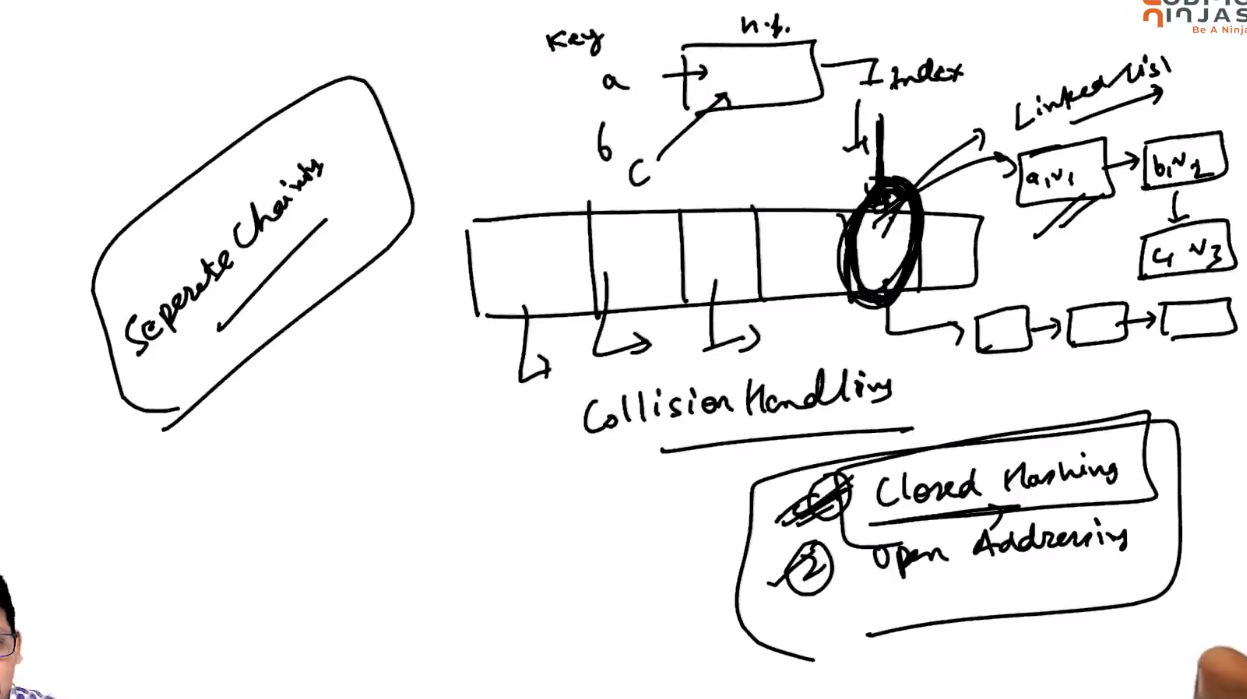 CODING
NINJAS
Be A Ninja
Key
h.f.
a
Index
b
C
Linked List
a, v1
b, v2
c, v3
Seperate Chaining
Collision Handling
Closed Hashing
2
Open Addressing